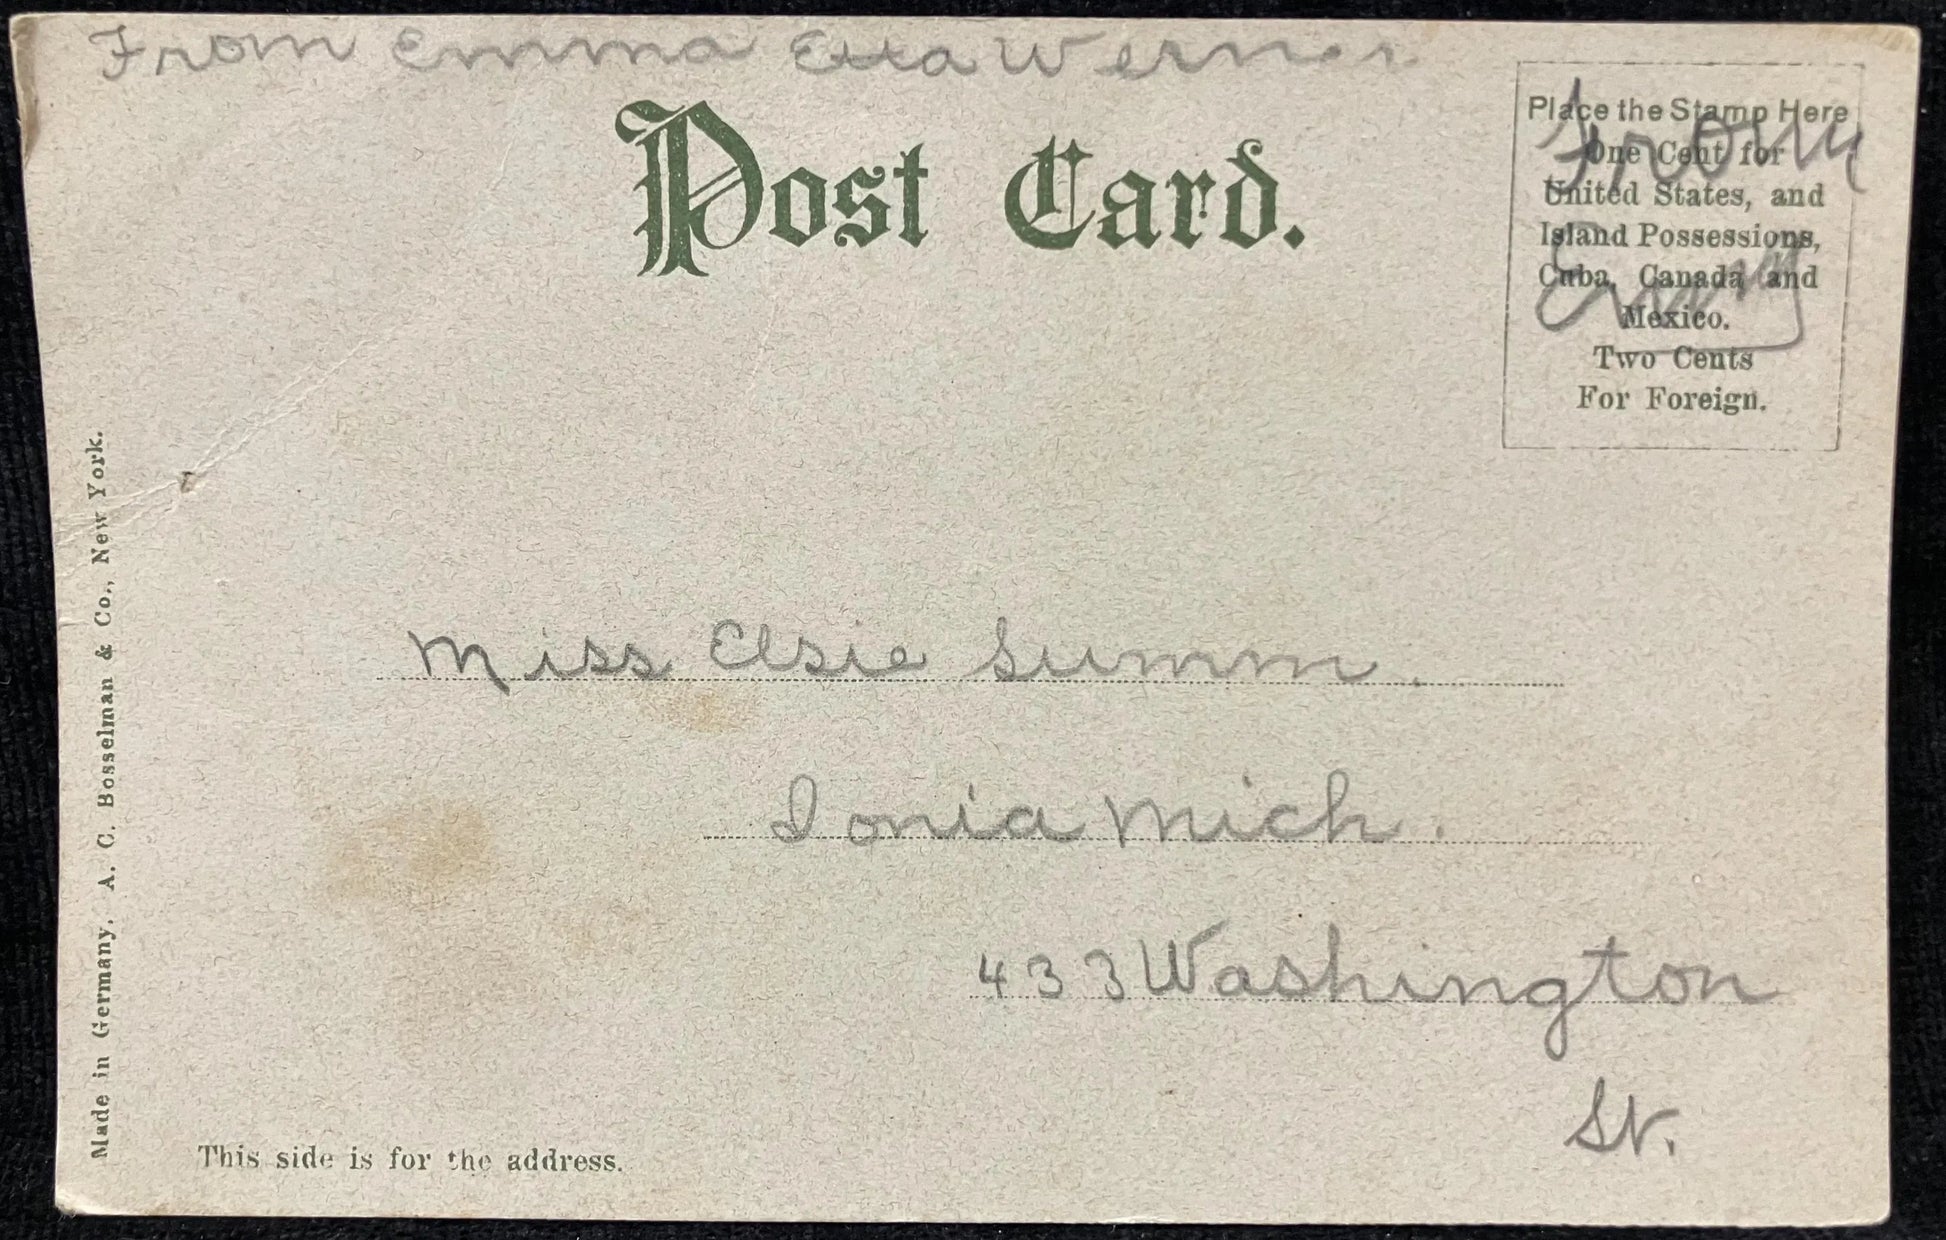 From Emma Etta Werner
Post Card.
Place the Stamp Here
One Cent for
United States, and
Island Possessions,
Cuba, Canada and
Mexico.
Two Cents
For Foreign.
From
Miss Elsie Summ.
Ionia Mich.
433 Washington
St.
Made in Germany. A. C. Bosselman & Co., New York.
This side is for the address.